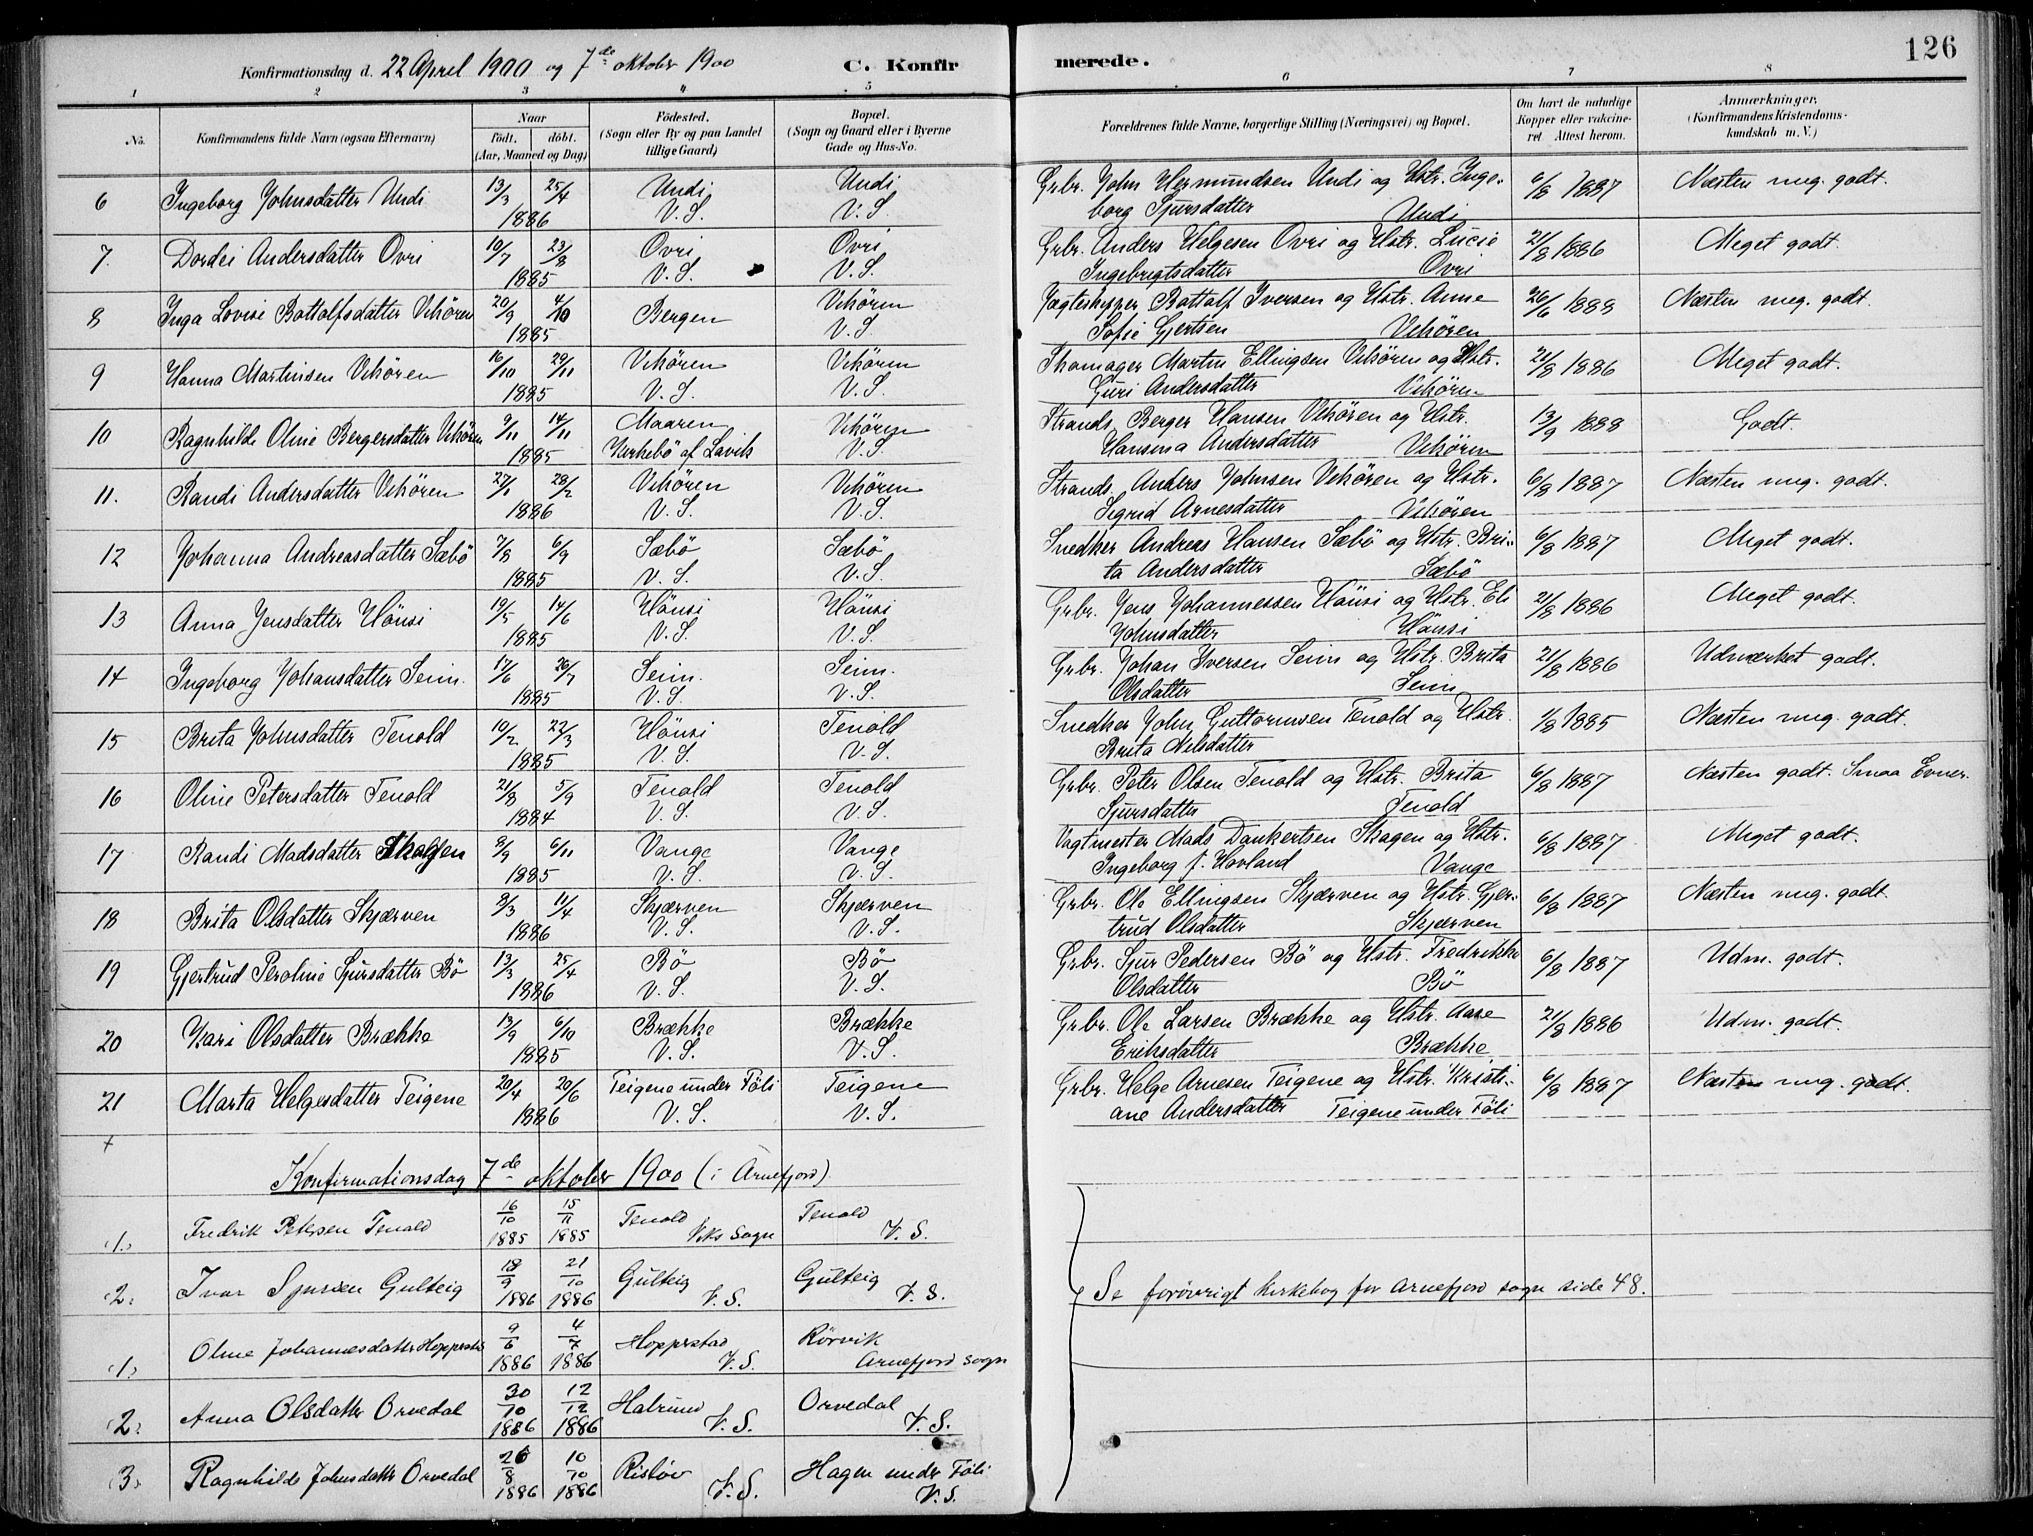 126
Konfirmationsdag d. 22 April 1900 og 7de oktober 1900 C. Konfirmerede.
1 2 3 4 5 6 7 8
No. Konfirmandens fulde Navn (ogsaa Efternavn) Naar født. døbt. (Aar, Maaned og Dag) Födested. (Sogn eller By og paa Landet tillige Gaard) Bopæl. (Sogn og Gaard eller i Byerne Gade og Hus-No. Forældrenes fulde Navne, borgerlige Stilling (Næringsvei) og Bopæl. Om havt de naturlige Kopper eller vakcineret. Attest herom. Anmærkninger. (Konfirmandens Kristendomskundskab m. V.)
6 Ingeborg Johnsdatter Undi 13/3 25/4 Undi Undi Grbr. John Hermundsen Undi og Hstr. Inge- 6/8 1887 Næsten meg. godt.
1886 V. S. V. S. borg Sjursdatter Undi
7. Dordei Andersdatter Ovri 10/7 23/8 Ovri Ovri Grbr. Anders Helgesen Ovri og Hstr. Lucie 21/8 1886 Meget godt.
1885 V. S. V. S. Ingebrigtsdatter Ovri
8 Inga Lovise Bottolfsdatter Vikören 20/9 4/10 Bergen Vikören Jægteskipper Bottolf Iversen og Hstr. Anne 26/6 1888 Næsten meg. godt.
1885 V. S. Sofie Gjertsen Vikören
9 Hanna Martinsen Vikören 16/10 29/11 Vikören Vikören Skomager Martin Ellingsen Vikören og Hstr. 21/8 1886 Meget godt.
1885 V. S. V. S. Guri Andersdatter Vikören
10 Ragnhilde Oline Bergersdatter Vikören 9/11 14/11 Maaren Vikören Strands. Berger Hansen Vikören og Hstr. 13/9 1888 Godt.
1885 Kirkebö af Lavik V. S. Hansina Andersdatter Vikören
11. Randi Andersdatter Vikören 22/1 28/2 Vikören Vikören Strands. Anders Johnsen Vikören og Hstr. 6/8 1887 Næsten meg. godt.
1886 V. S. V. S. Sigrid Arnesdatter Vikören
12 Johanna Andreasdatter Sæbö 7/8 6/9 Sæbö Sæbö Snedker Andreas Hansen Sæbö og Hstr. Bri- 6/8 1887 Meget godt.
1885 V. S. V. S. ta Andersdatter Sæbö
13 Anna Jensdatter Hönsi 19/5 14/6 Hönsi Hönsi Grbr. Jens Johannessen Hönsi og Hstr. Eli 21/8 1886 Meget godt.
1885 V. S. V. S. Johnsdatter Hönsi
14 Ingeborg Johansdatter Seim. 17/6 26/7 Seim. Seim. Grbr. Johan Iversen Seim og Hstr. Brita 21/8 1886 Udmærket godt.
1885 V. S. V. S. Olsdatter Seim
15 Brita Johnsdatter Tenold 10/2 22/3 Hönsi Tenold Snedker John Guttormsen Tenold og Hstr. 1/8 1885 Næsten meg. godt.
1885 V. S. V. S. Brita Nelsdatter
16 Oline Petersdatter Tenold 21/8 5/9 Tenold Tenold Grbr. Peter Olsen Tenold og Hstr. Brita 6/8 1887 Næsten godt. Smaa Evner.
1884 V. S. V. S. Sjursdatter Tenold
17 Randi Madsdatter Skagen 8/9 6/11 Vange Vange Vagtmester Mads Dankertsen Skagen og Hstr. 6/8 1887 Meget godt.
1885 V. S. V. S. Ingeborg f. Hovland Vange
18 Brita Olsdatter Skjærven 8/3 11/4 Skjærven Skjærven Grbr. Ole Ellingsen Skjærven og Hstr. Gjer- 6/8 1887 Næsten meg. godt.
1886 V. S. V. S. trud Olsdatter Skjærven
19 Gjertrud Peroline Sjursdatter Bö 13/3 25/4 Bö Bö Grbr. Sjur Pedersen Bö og Hstr. Fredrikke 6/8 1887 Udm. godt.
1886 V. S. V. S. Olsdatter Bö
20 Kari Olsdatter Brække 13/9 6/10 Brække Brække Grbr. Ole Larsen Brække og Hstr. Aase 21/8 1886 Udm. godt.
1885 V. S. V. S. Eriksdatter Brække
21 Marta Helgesdatter Teigene 20/4 20/6 Teigene under Föli Teigene Grbr. Helge Arnesen Teigene og Hstr. Kristi- 6/8 1887 Næsten meg. godt.
1886 V. S. V. S. ane Andersdatter Teigene under Föli
+
Konfirmationsdag 7de oktober 1900 (i Arnefjord).
(1.) Fredrik Petersen Tenold 16/10 1885 15/11 1885 Tenold Viks Sogn Tenold V. S.
(2.) Ivar Sjursen Gulteig 18/9 1886 21/10 1886 Gulteig V. S. Gulteig V. S.
Se forövrigt kirkebog for Arnefjord sogn side 48.
(1.) Oline Johannesdatter Hopperstad 9/6 1886 4/7 1886 Hopperstad V. S. Rörvik Arnefjord sogn
(2.) Anna Olsdatter Orvedal 30/10 1886 12/12 1886 Halrund V. S. Orvedal V. S.
(3.) Ragnhilde Johnsdatter Orvedal 26/8 1886 10/10 1886 Risløv V. S. Hagen under Föli V. S.